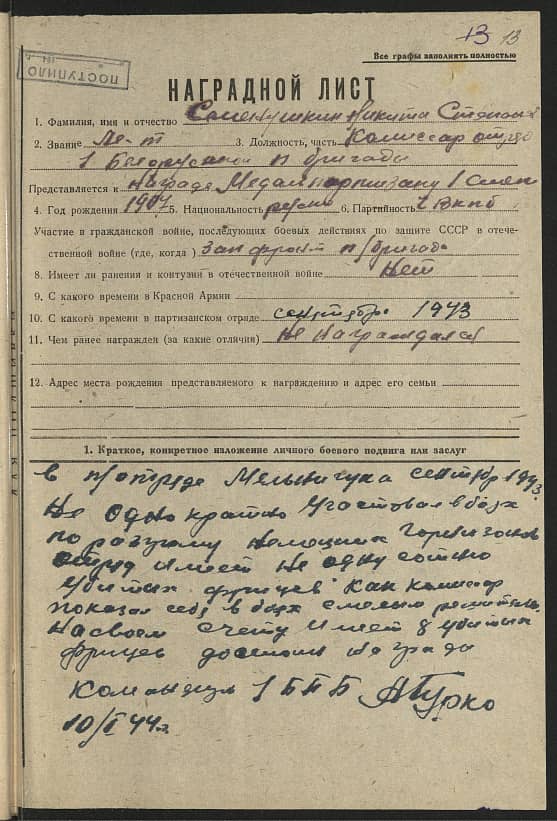 13 13
Все графы заполнять полностью
ПОСТУПИЛО
НАГРАДНОЙ ЛИСТ
1. Фамилия, имя и отчество Семенушкин Никита
2. Звание Ле-т 3. Должность, часть Комиссар отряда
1 Белорусской п бригады
Представляется к награде Медали партизану 1 степ
4. Год рождения 1907 5. Национальность русск 6. Партийность ч ВКПб
Участие в гражданской войне, последующих боевых действиях по защите СССР в отече-
ственной войне (где, когда) Зап фронт п/бригада
8. Имеет ли ранения и контузии в отечественной войне Нет
9. С какого времени в Красной Армии
10. С какого времени в партизанском отряде сентябрь 1943
11. Чем ранее награжден (за какие отличия) Не награждался
12. Адрес места рождения представляемого к награждению и адрес его семьи
1. Краткое, конкретное изложение личного боевого подвига или заслуг
в п/отряде Мельничука 1943.
Не однократно участвовал в боях
по разгрому немецких гарнизонов
отряд имеет не одну сотню
убитых фрицев как комиссар
показал себя в боях смелым
на своем счету имеет 8 убитых
фрицев достоин награды
Командир 1 БПБ АТурко
10/I 44г.